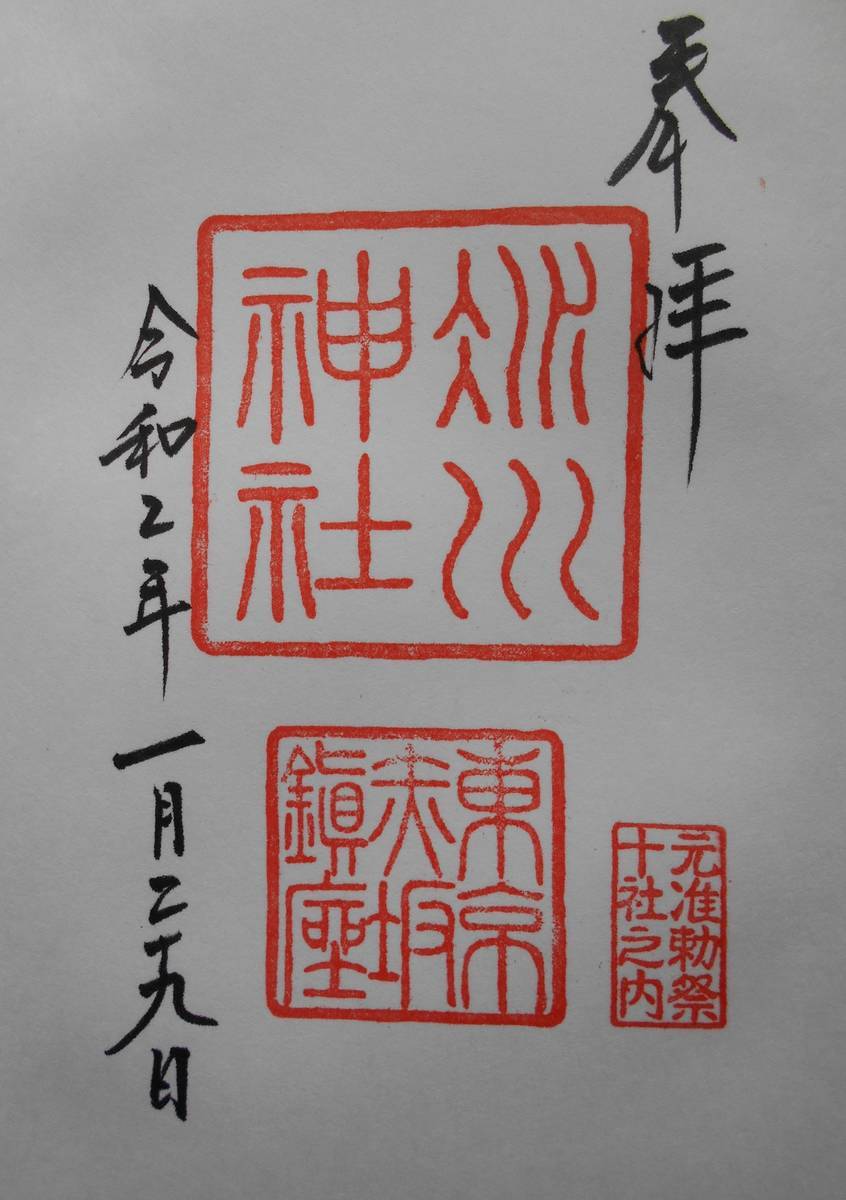 奉拝
氷川
神社
東京
赤坂
鎮座
元准勅祭
十社之内
令和2年一月二十九日